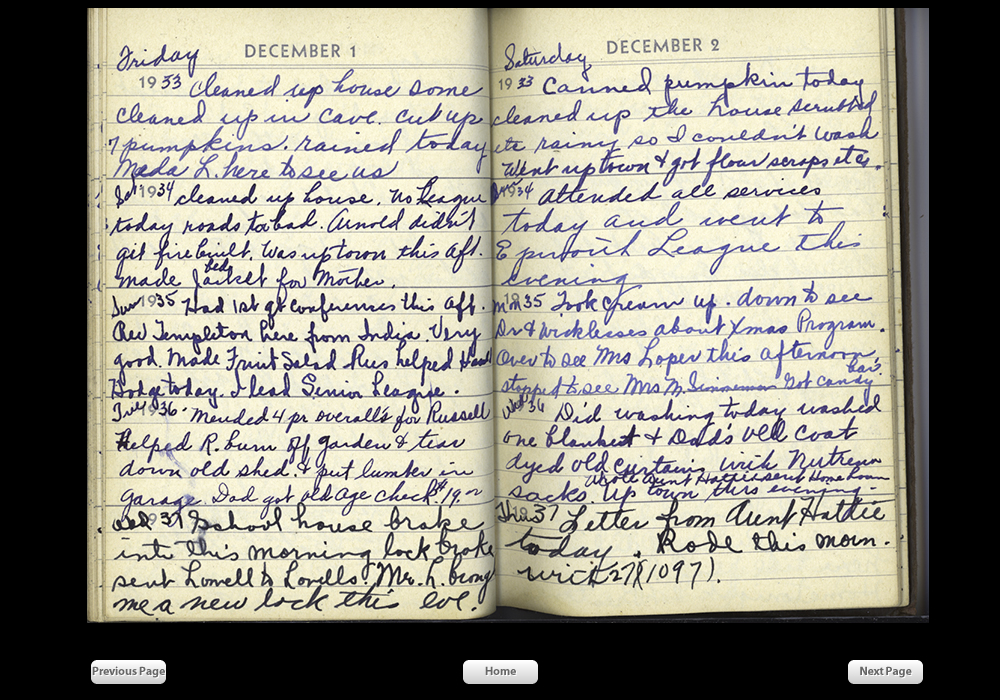 DECEMBER 1
Friday
1933 cleaned up house some
cleaned up in cave. cut up
7 pumpkins. rained today
Meda L. here to see us
Sat 1934 cleaned up house. No League
today roads too bad. Arnold didn't
get fire built. Was up town this aft.
made bed Jacket for Mother.
Sun 1935 Had 1st qt conferences this aft.
Rev Templeton here from India. Very
good. Made Fruit Salad Rus helped
Hodge today. I lead Senior League.
Tue 1936. Mended 4 pr overalls for Russell
Helped R. burn off garden & tear
down old shed. & put lumber in
garage. Dad got old age check $19.00
Wed 1937 School house broke
into this morning lock broke
sent Lowell to Lovells. Mr. L. brong
me a new lock this eve.
DECEMBER 2
Saturday
1933 Canned pumpkin today
cleaned up the house scrubbed
etc rainy so I couldn't wash
Went up town & got flour scraps etc.
1934 Attended all services
today and went to
Epworth League this
evening
Mon 1935 Took cream up. down to see
Dr & about Xmas Program.
Over to see Mrs Loper this afternoon,
stopped to see Mrs M. Got candy
bar.
Wed 36 Did washing today washed
one blanket & Dad's old coat
dyed old curtains with
Wrote Aunt Hattie sent Home
sacks. Up town this evening.
Thurs 37 Letter from Aunt Hattie
today. Rode this morn.
with 27 (1097).
Previous Page
Home
Next Page